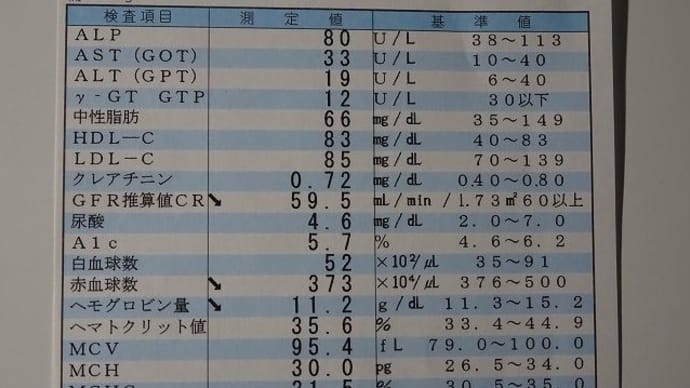 検査項目 測定値 基準値
ALP 80 U/L 38～113
AST(GOT) 33 U/L 10～40
ALT(GPT) 19 U/L 6～40
γ-GT GTP 12 U/L 30以下
中性脂肪 66 mg/dL 35～149
HDL-C 83 mg/dL 40～83
LDL-C 85 mg/dL 70～139
クレアチニン 0.72 mg/dL 0.40～0.80
GFR推算値CR ↘ 59.5 mL/min/1.73㎡60以上
尿酸 4.6 mg/dL 2.0～7.0
A1c 5.7 % 4.6～6.2
白血球数 52 ×10²/μL 35～91
赤血球数 ↘ 373 ×10⁴/μL 376～500
ヘモグロビン量 ↘ 11.2 g/dL 11.3～15.2
ヘマトクリット値 35.6 % 33.4～44.9
MCV 95.4 fL 79.0～100.0
MCH 30.0 pg 26.5～34.0
MCHC 31.5 % 30.5～35.0